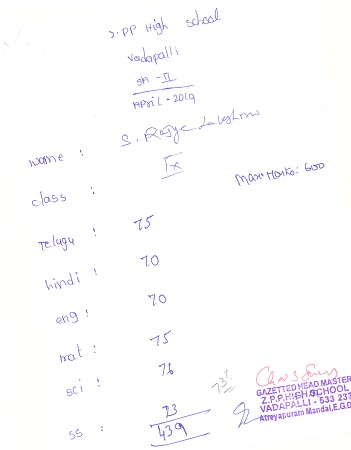 Z.PP High school
Vadapalli
SA - II
APriL - 2019
name : S. Rajya Lakshmi
class : IX
Max Marks: 600
Telugu : 75
hindi : 70
eng : 70
mat : 75
sci : 76
73%
ss : 73
439
GAZETTED HEAD MASTER
Z.P.P.HIGH SCHOOL
VADAPALLI - 533 237
Atreyapuram Mandal, E.G.D